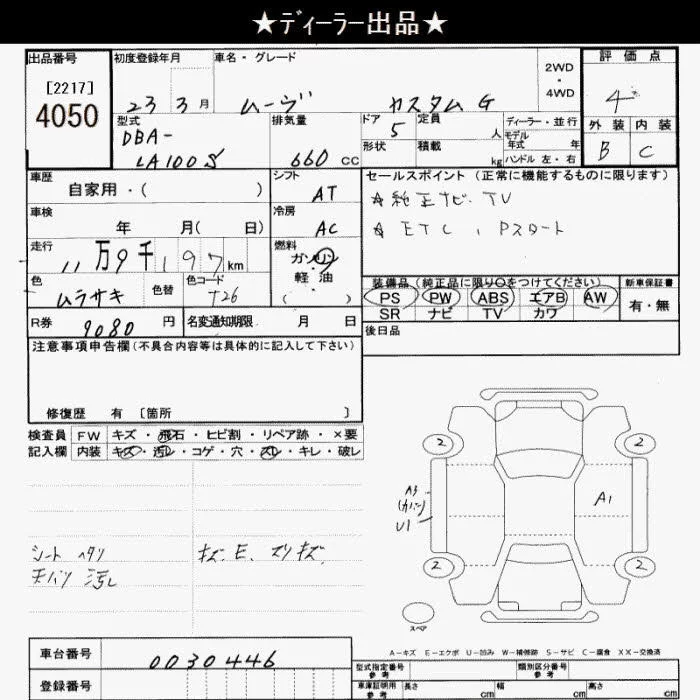 ★ディーラー出品★
出品番号 初度登録年月 車名・グレード 2WD・4WD 評価点
[2217]
4050
23 3月 ムーヴ カスタムG 4
型式 排気量 ドア 定員 人 ディーラー・並行 外装 内装
DBA- 5 モデル年式 年
LA100S 660 CC 形状 積載 kg ハンドル 左・右 B C
車歴 シフト セールスポイント (正常に機能するものに限ります)
自家用・( ) AT ★純正ナビ、TV
車検 冷房 ★ETC、Pスタート
年 月( 日) AC
走行 燃料
11万9千197km ガソリン・軽油
( )
色 色替 色コード 装備品(純正品に限り○をつけてください) 新車保証書
ムラサキ T26 PS PW ABS エアB AW 有・無
SR ナビ TV カワ
R券 9080円 名変通知期限 月 日 後日品
注意事項申告欄(不具合内容等は具体的に記入して下さい)
修復歴 有 [箇所 ]
検査員 FW キズ・飛石・ヒビ割・リペア跡・×要
記入欄 内装 キズ・汚レ・コゲ・穴・スレ・キレ・破レ
2 2
A3
(カバー) A1
U1
シート ヘタリ キズ、E、スリキズ、
天バリ 汚レ
2 2
スペア
A-キズ E-エクボ U-凹み W-補修跡 S-サビ C-腐食 XX-交換済
車台番号 0030446
型式指定番号 参考 類別区分番号 参考
登録番号 車庫証明用 参考 長さ cm 幅 cm 高さ cm